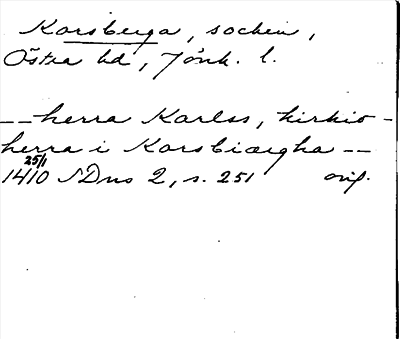 Korsberga, socken,
Östra hd, Jönk. l.
-- herra Karlss, kirkio-
herra i Korsbiærgha --
25/1
1410 SDns 2, s. 251 orig.